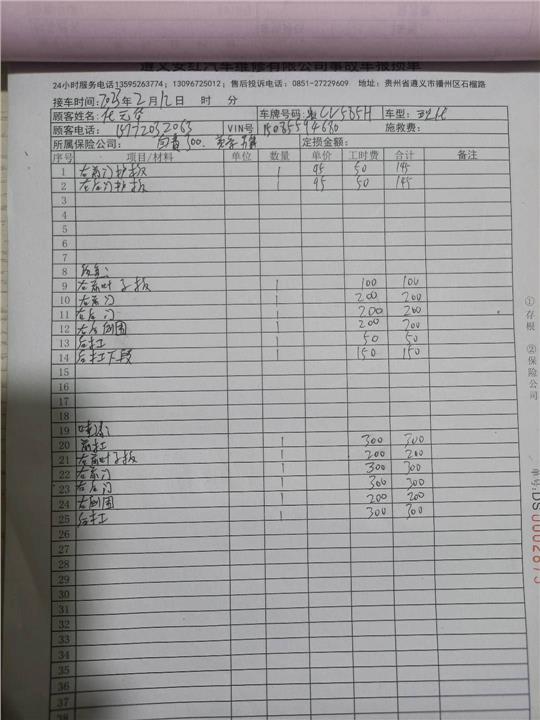 遵义安红汽车维修有限公司事故车报损单
24小时服务电话13595263774; 13096725012; 售后投诉电话: 0851-27229609 地址: 贵州省遵义市播州区石榴路
接车时间: 2023年2月12日 时 分
顾客姓名: 车牌号码: 贵CV585H 车型:
顾客电话: 15772032063 VIN号 15085594680 施救费:
所属保险公司: 定损金额:
序号 项目/材料 单位 数量 单价 工时费 合计 备注
1 右前门护板 1 95 50 145
2 右后门护板 1 95 50 145
3
4
5
6
7
8
9 右前叶子板 1 100 100
10 右前门 1 200 200
11 右后门 1 200 200
12 右后侧围 1 200 200
13 后杠 1 50 50
14 后杠下段 1 150 150
15
16
17
18
19 喷漆:
20 前杠 1 300 300
21 右前叶子板 1 200 200
22 右前门 1 300 300
23 右后门 1 300 300
24 右侧围 1 200 200
25 后杠 1 300 300
26
27
28
29
30
31
32
33
34
35
36
37
38
① 存根 ② 保险公司
DS0002875